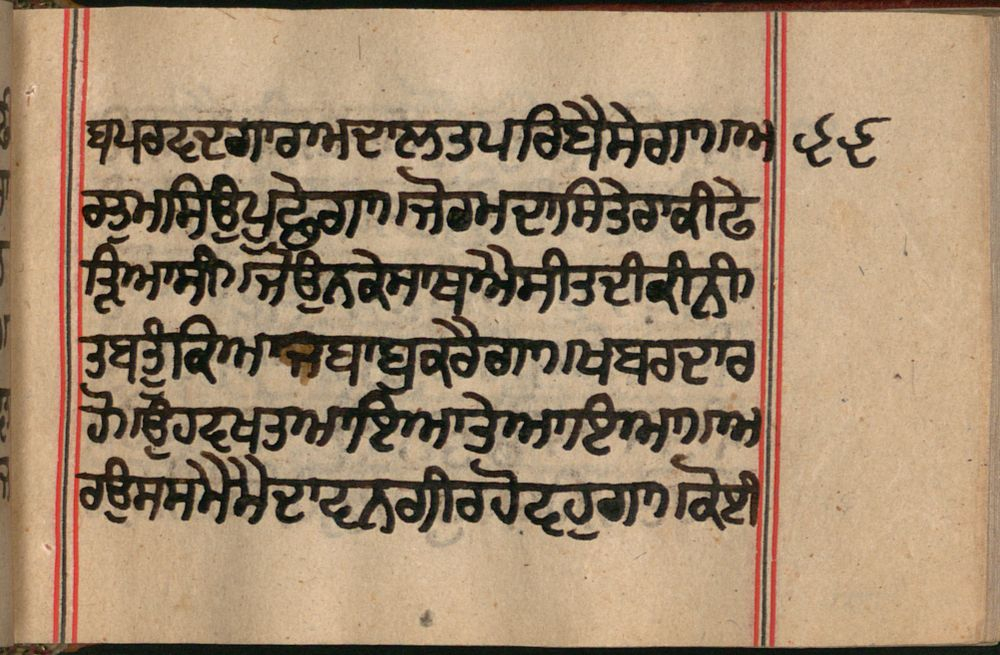 ਬਪਰਵਦਗਾਰਾਅਦਾਲਤਪਰਿਬੈਸੇਗਾ।।ਅ ੬੬
ਰਤੁਮਸਿਉਪੁਛੇਗਾ।।ਜੋਰਮਦਾਸਿਤੇਰਾਕੀਢੇ
ੜਿਆਸੀ।।ਜੋਉਨਕੇਸਾਥਐਸੀਤਦੀਕੀਨੀ
ਤਬਤੂੰਕਿਆਜਬਾਬੁਕਰੈਗਾ।।ਖਬਰਦਾਰ
ਹੋ।ਉਹਵਖਤਆਇਆਤੇਆਇਆ।।ਅ
ਰਉਸਸਮੈਮੈਮੇਦਾਵਨਗੀਰਹੋਵਹੁਗਾ।।ਕੋਈ